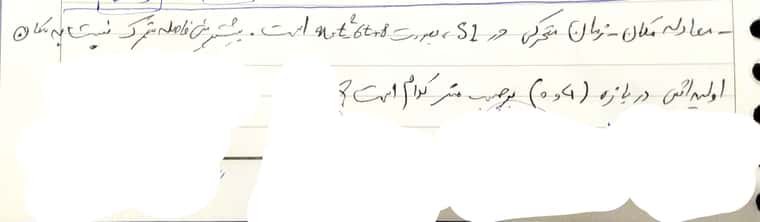 - معادله مکان - زمان متحرکی در SI، بصورت x=t²-6t+8 است. بیشترین فاصله متحرک نسبت به مکان
اولیه اش در بازه (0و4) برحسب متر کدام است؟